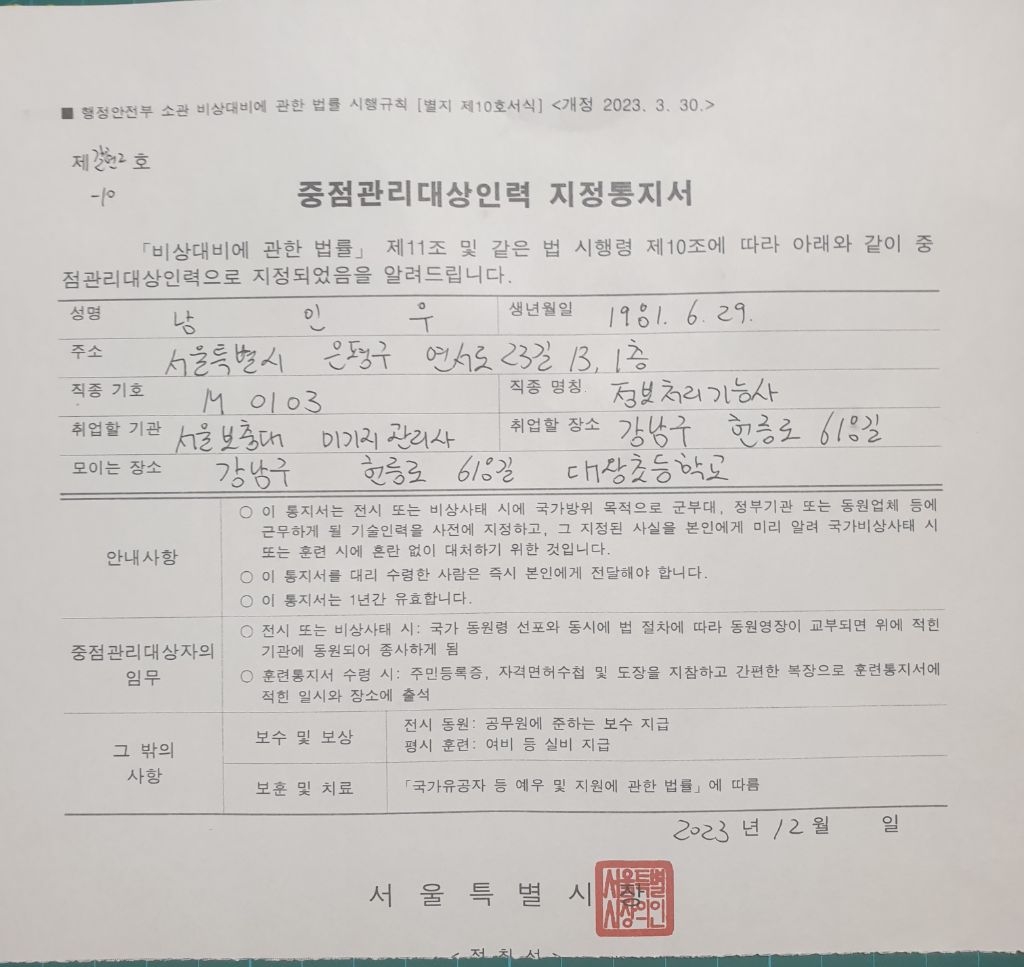 ■ 행정안전부 소관 비상대비에 관한 법률 시행규칙 [별지 제10호서식] <개정 2023. 3. 30.>
제갈현2 호
-10
중점관리대상인력 지정통지서
「비상대비에 관한 법률」 제11조 및 같은 법 시행령 제10조에 따라 아래와 같이 중
점관리대상인력으로 지정되었음을 알려드립니다.
성명 남 인 우 생년월일 1981. 6. 29.
주소 서울특별시 은평구 연서로 23길 13, 1층
직종 기호 M 0103 직종 명칭 정보처리기능사
취업할 기관 서울보충대 미기지관리사 취업할 장소 강남구 헌릉로 618길
모이는 장소 강남구 헌릉로 618길 대왕초등학교
안내사항
○ 이 통지서는 전시 또는 비상사태 시에 국가방위 목적으로 군부대, 정부기관 또는 동원업체 등에
근무하게 될 기술인력을 사전에 지정하고, 그 지정된 사실을 본인에게 미리 알려 국가비상사태 시
또는 훈련 시에 혼란 없이 대처하기 위한 것입니다.
○ 이 통지서를 대리 수령한 사람은 즉시 본인에게 전달해야 합니다.
○ 이 통지서는 1년간 유효합니다.
중점관리대상자의
임무
○ 전시 또는 비상사태 시: 국가 동원령 선포와 동시에 법 절차에 따라 동원영장이 교부되면 위에 적힌
기관에 동원되어 종사하게 됨
○ 훈련통지서 수령 시: 주민등록증, 자격면허수첩 및 도장을 지참하고 간편한 복장으로 훈련통지서에
적힌 일시와 장소에 출석
그 밖의
사항
보수 및 보상
전시 동원: 공무원에 준하는 보수 지급
평시 훈련: 여비 등 실비 지급
보훈 및 치료
「국가유공자 등 예우 및 지원에 관한 법률」에 따름
2023 년 12 월 일
서 울 특 별 시 장
서울특별
시장의인
< 절 취 선 >